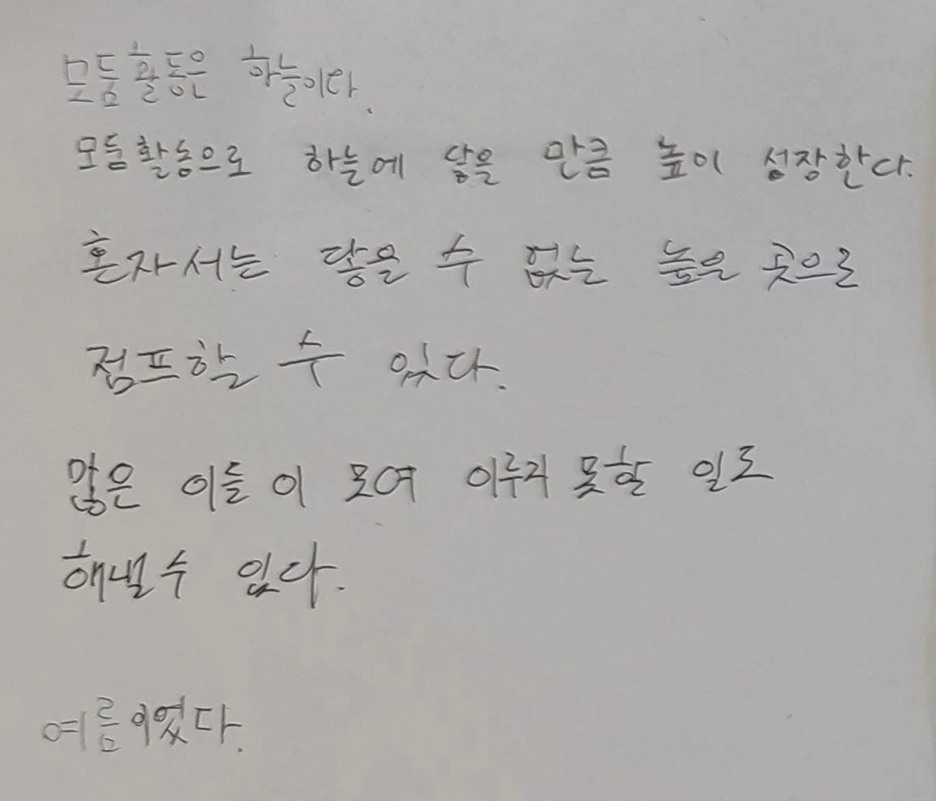 모둠활동은 하늘이다.
모둠활동으로 하늘에 닿을 만큼 높이 성장한다.
혼자서는 닿을 수 없는 높은 곳으로
점프할 수 있다.
많은 이들이 모여 이루지 못할 일도
해낼수 있다.
여름이었다.